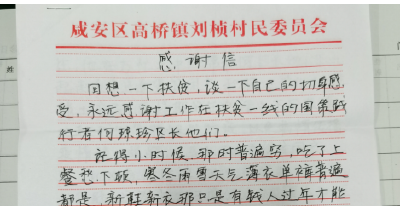 咸安区高桥镇刘桢村民委员会
感谢信
回想一下扶贫，谈一下自己的切身感
受，永远感谢工作在扶贫一线的国策践
行者何琼珍区长他们。
记得小时候，那时普遍穷，吃了上
餐愁下顿，寒冬雨雪天气薄衣单裤普遍
都是，新鞋新衣那只是有钱人过年才能
姓